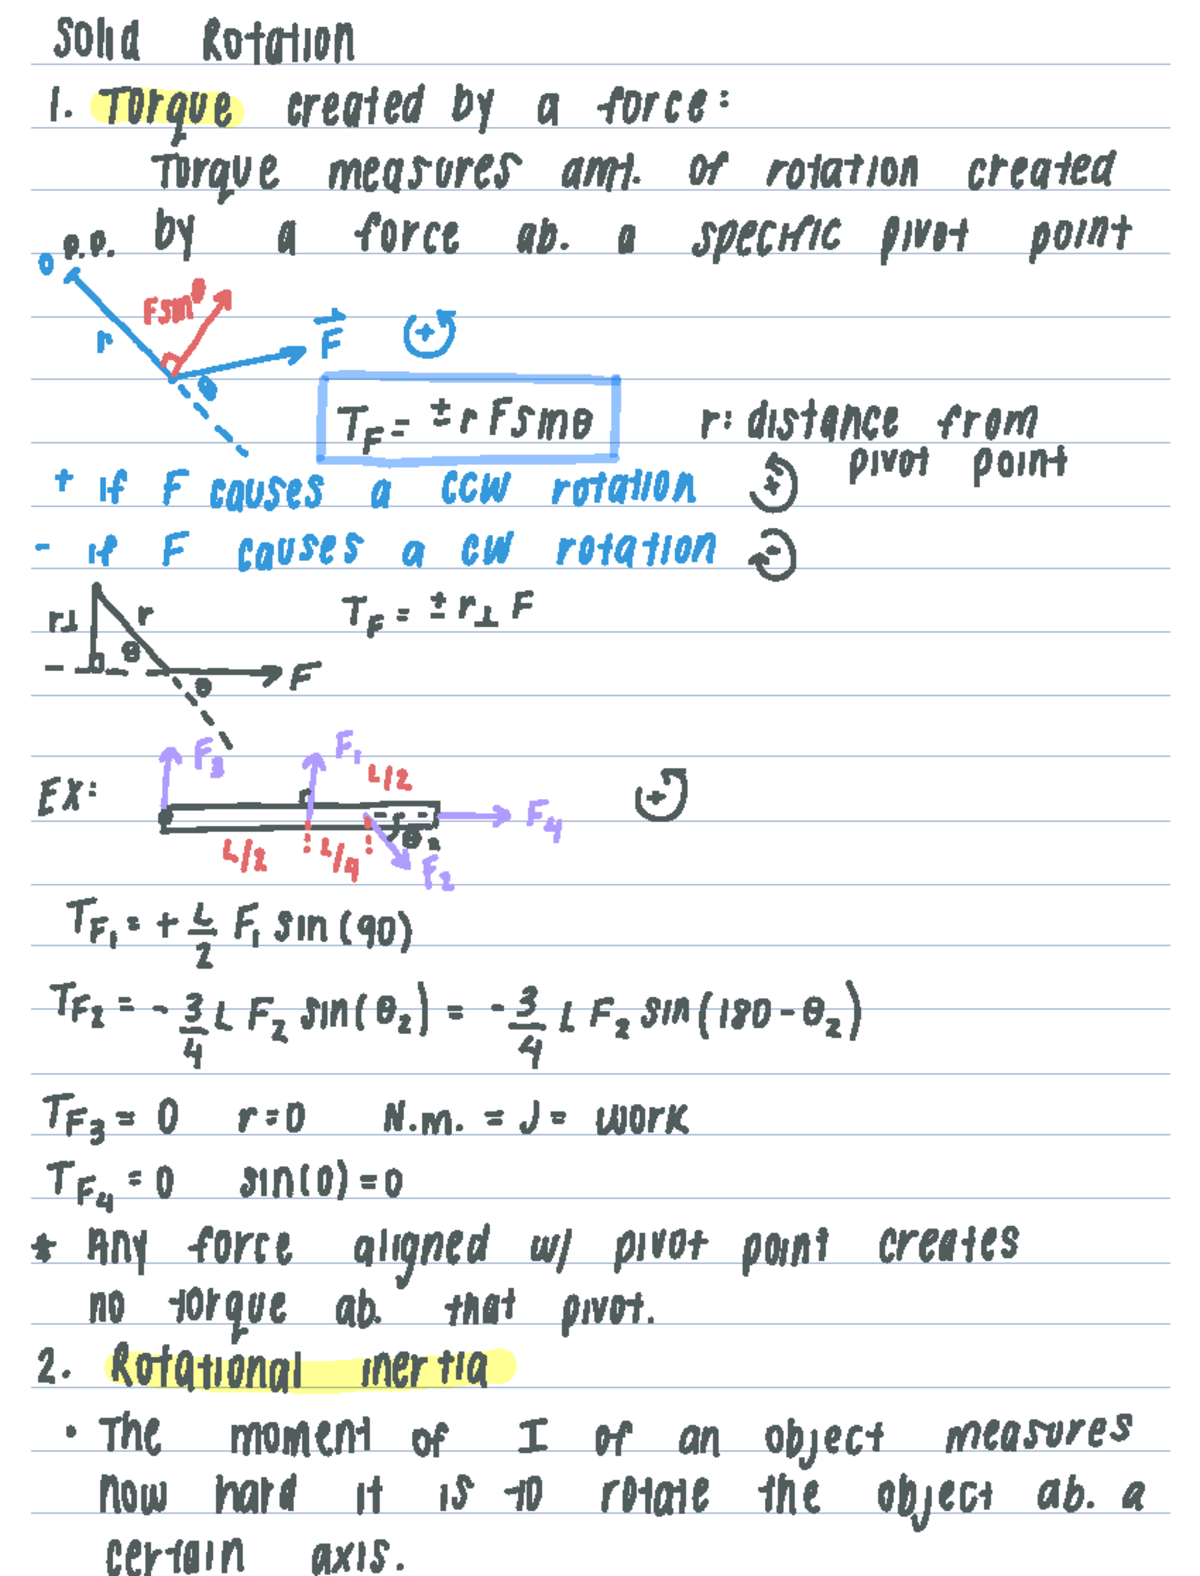 Solid Rotation
1. Torque created by a force:
Torque measures amt. of rotation created
by a force ab. a specific pivot point
O P.P.
r
Fsinθ
F
θ
+
T_F = ± r F sin θ
r: distance from
pivot point
+ if F causes a CCW rotation +
- if F causes a CW rotation -
r⊥ r θ F θ
T_F = ± r⊥ F
EX:
F₃ F₁ L/2 F₄ +
L/2 L/4 θ₂ F₂
T_F₁ = + L/2 F₁ sin(90)
T_F₂ = - 3/4 L F₂ sin(θ₂) = - 3/4 L F₂ sin(180 - θ₂)
T_F₃ = 0 r=0 N.m. = J = work
T_F₄ = 0 sin(0) = 0
* Any force aligned w/ pivot point creates
no torque ab. that pivot.
2. Rotational inertia
• The moment of I of an object measures
how hard it is to rotate the object ab. a
certain axis.